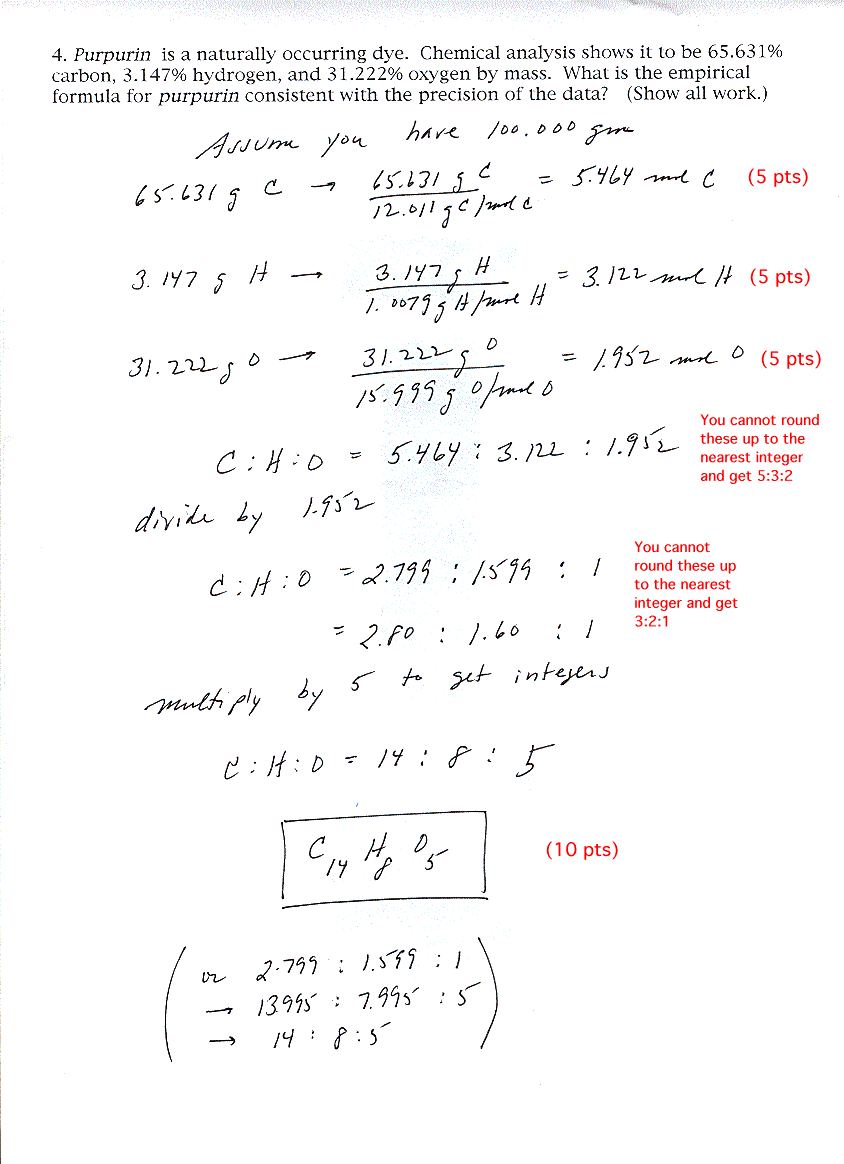 4. Purpurin is a naturally occurring dye. Chemical analysis shows it to be 65.631%
carbon, 3.147% hydrogen, and 31.222% oxygen by mass. What is the empirical
formula for purpurin consistent with the precision of the data? (Show all work.)
Assume you have 100.000 gm
65.631 g C → 65.631 g C / 12.011 g C/mol C = 5.464 mol C (5 pts)
3.147 g H → 3.147 g H / 1.0079 g H/mol H = 3.122 mol H (5 pts)
31.222 g O → 31.222 g O / 15.999 g O/mol O = 1.952 mol O (5 pts)
C : H : O = 5.464 : 3.122 : 1.952
You cannot round
these up to the
nearest integer
and get 5:3:2
divide by 1.952
C : H : O = 2.799 : 1.599 : 1
You cannot
round these up
to the nearest
integer and get
3:2:1
= 2.80 : 1.60 : 1
multiply by 5 to get integers
C : H : O = 14 : 8 : 5
C14 H8 O5 (10 pts)
or 2.799 : 1.599 : 1
→ 13.995 : 7.995 : 5
→ 14 : 8 : 5